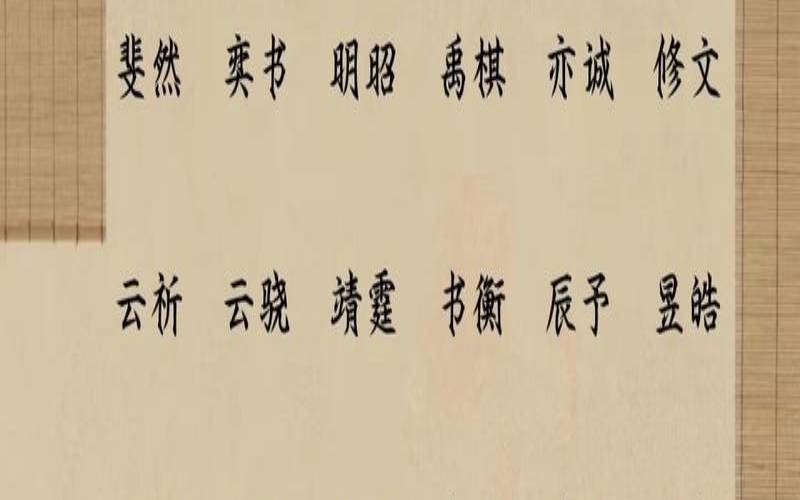 斐然 奕书 明昭 禹棋 亦诚 修文
云祈 云骁 靖霆 书衡 辰予 昱皓